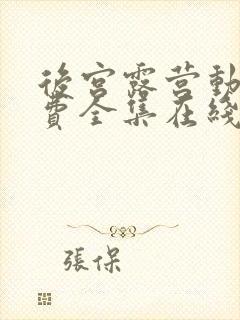 後宮露营動
費全集在綫
張保